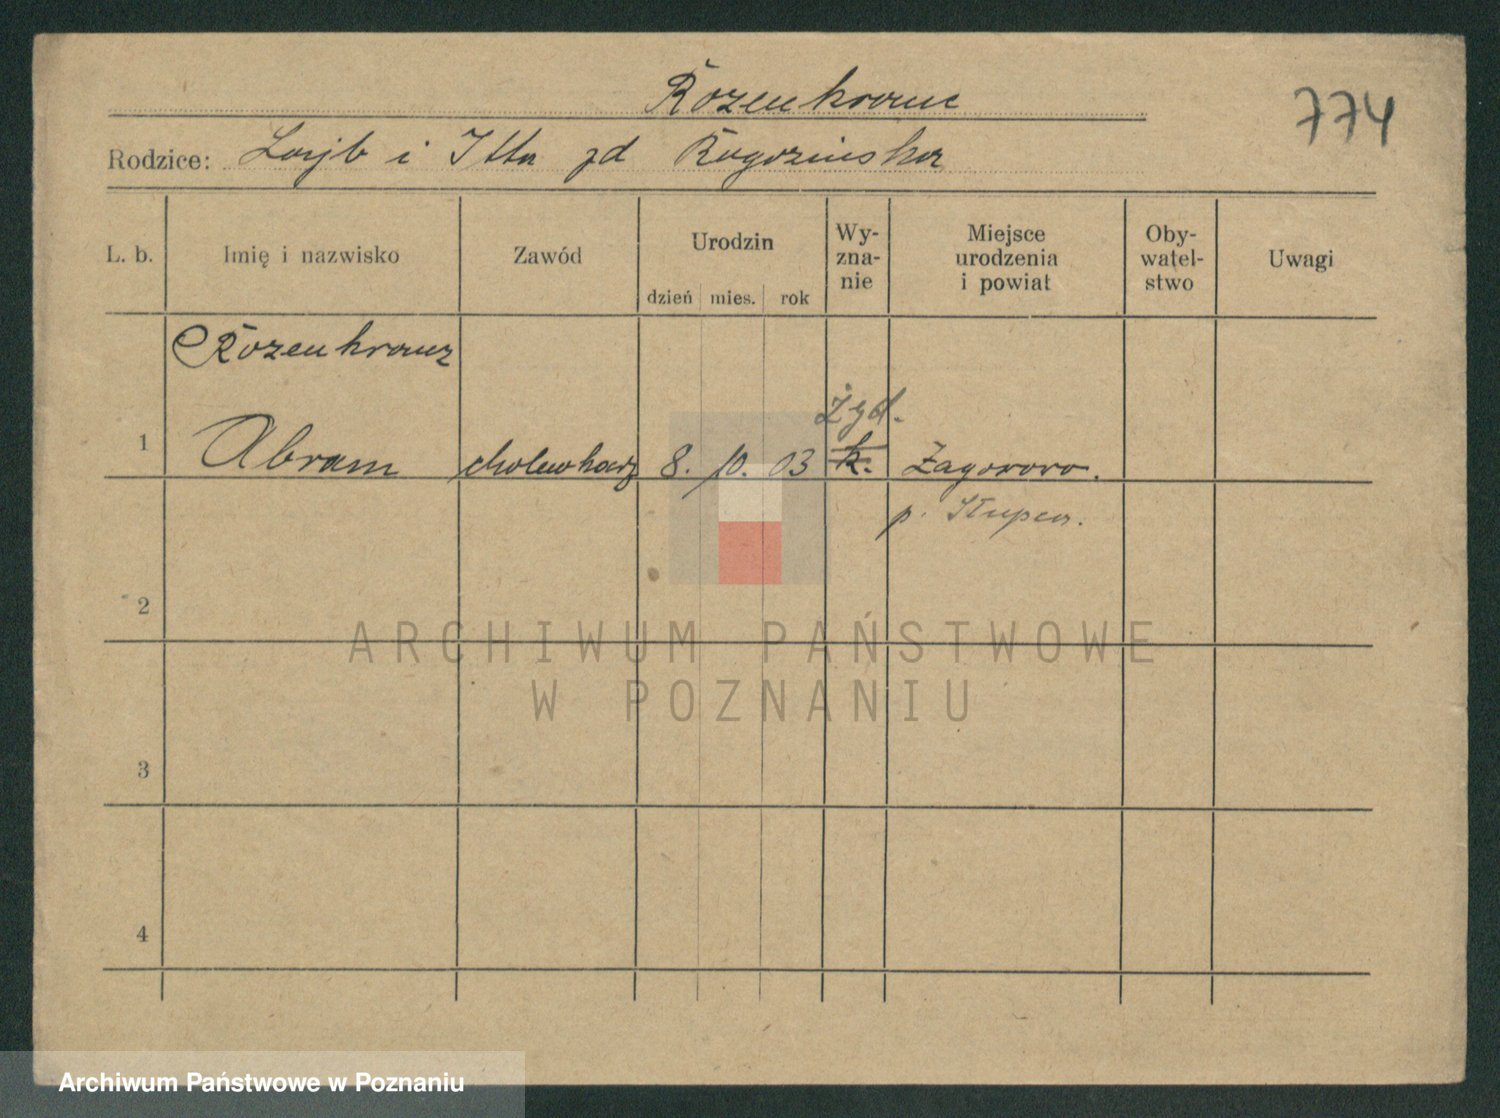 Rozenkranc
774
Rodzice: Lajb i Itta zd Rogozińska
L. b. Imię i nazwisko Zawód Urodzin dzień mies. rok Wy-zna-nie Miejsce urodzenia i powiat Oby-watel-stwo Uwagi
Rozenkranz
Żyd.
1 Abram cholewkarz 8. 10. 03 k. Zagorowo.
p. Słupca.
2
ARCHIWUM PAŃSTWOWE
W POZNANIU
3
4
Archiwum Państwowe w Poznaniu